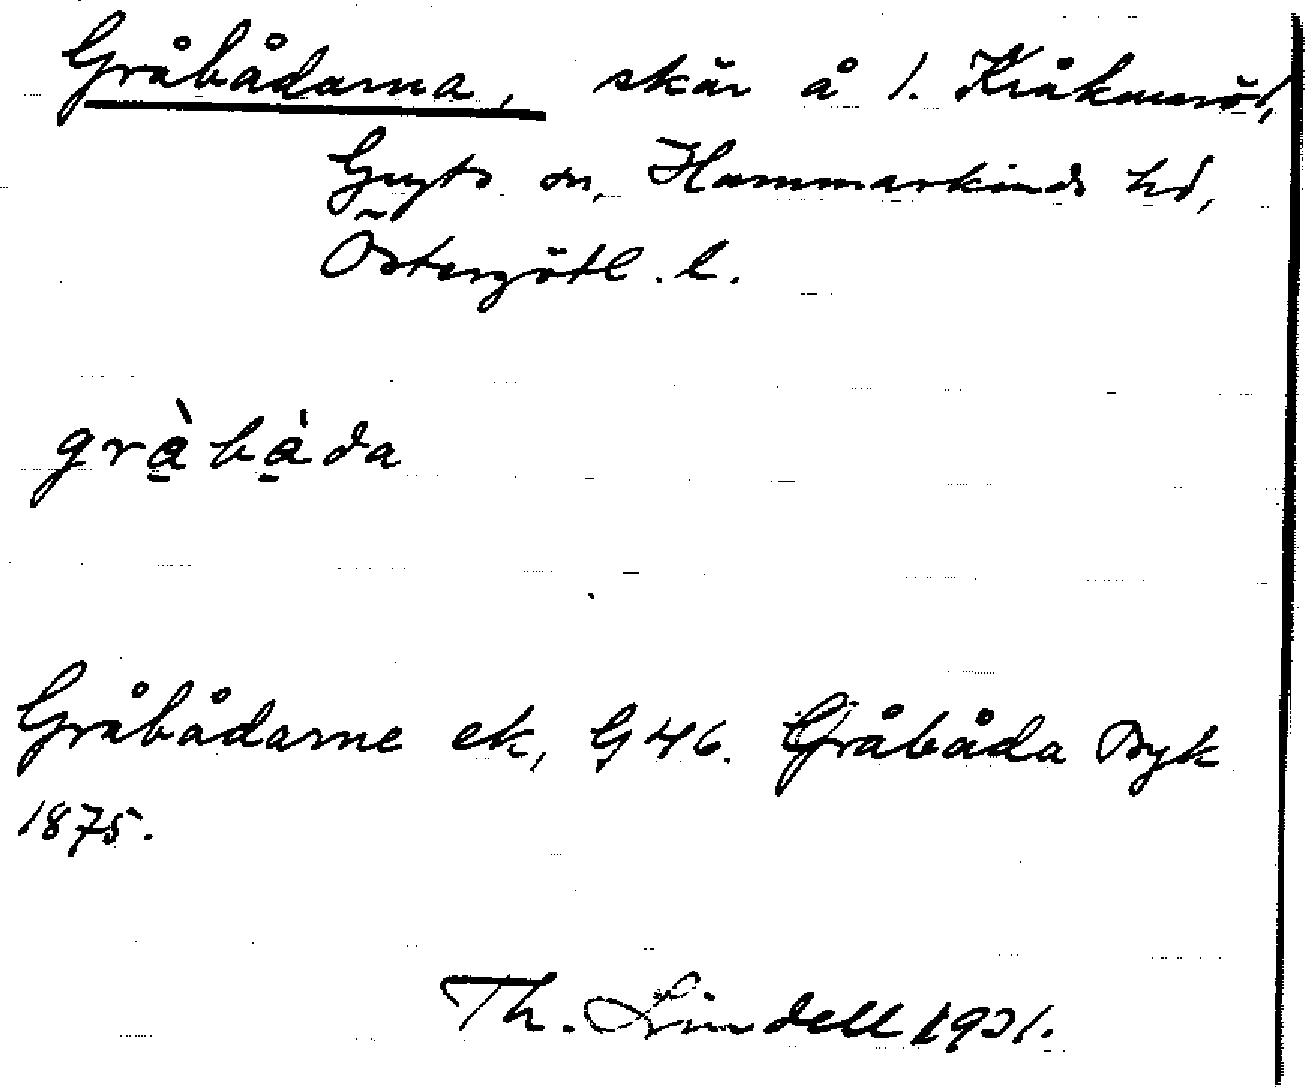 Gråbådarna, skär å 1. Kråkmarö,
Gryts sn, Hammarkinds hd,
Östergötl. l.
gràbàda
Gråbådarne ek, G 46. Gråbåda Byk
1875.
Th. Lindell 1921.